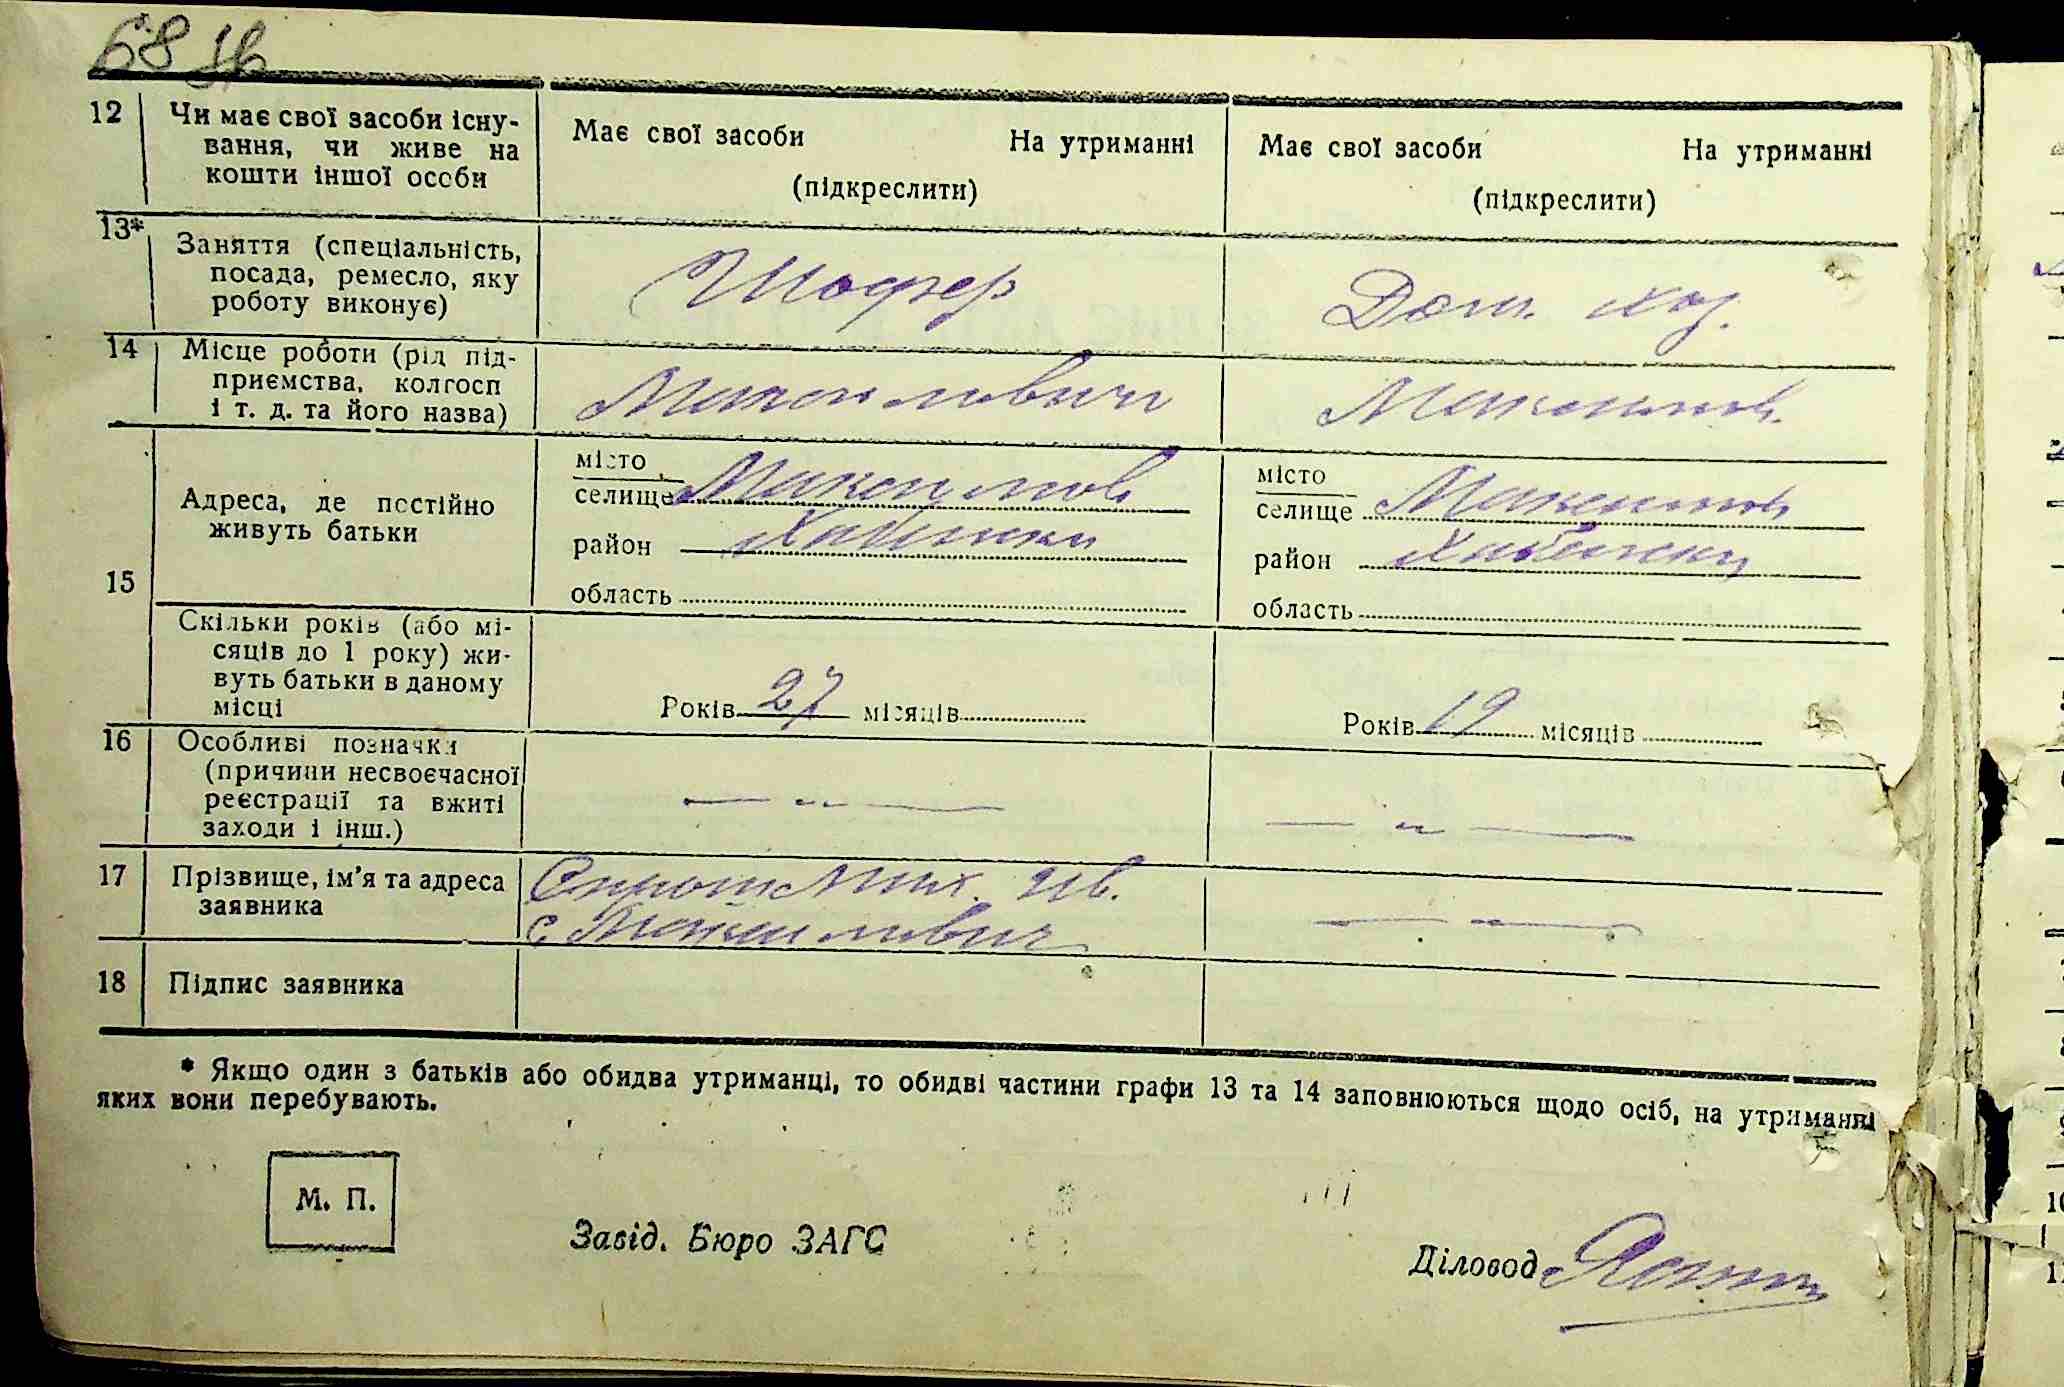 68 зв
12 Чи має свої засоби існу-
вання, чи живе на
кошти іншої особи
Має свої засоби На утриманні
(підкреслити)
Має свої засоби На утриманні
(підкреслити)
13* Заняття (спеціальність,
посада, ремесло, яку
роботу виконує)
Шофер
Дом. хоз.
14 Місце роботи (рід під-
приємства, колгосп
і т. д. та його назва)
Максимович
Максимов.
15 Адреса, де постійно
живуть батьки
місто
селище Максимов
район
область
місто
селище Максимов
район
область
Скільки років (або мі-
сяців до 1 року) жи-
вуть батьки в даному
місці
Років 27 місяців
Років 19 місяців
16 Особливі позначки
(причини несвоєчасної
реєстрації та вжиті
заходи і інш.)
— „ —
— „ —
17 Прізвище, ім'я та адреса
заявника
Мих. Ив.
с. Максимович
— „ —
18 Підпис заявника
* Якщо один з батьків або обидва утриманці, то обидві частини графи 13 та 14 заповнюються щодо осіб, на утриманні
яких вони перебувають.
М. П.
Завід. Бюро ЗАГС
Діловод